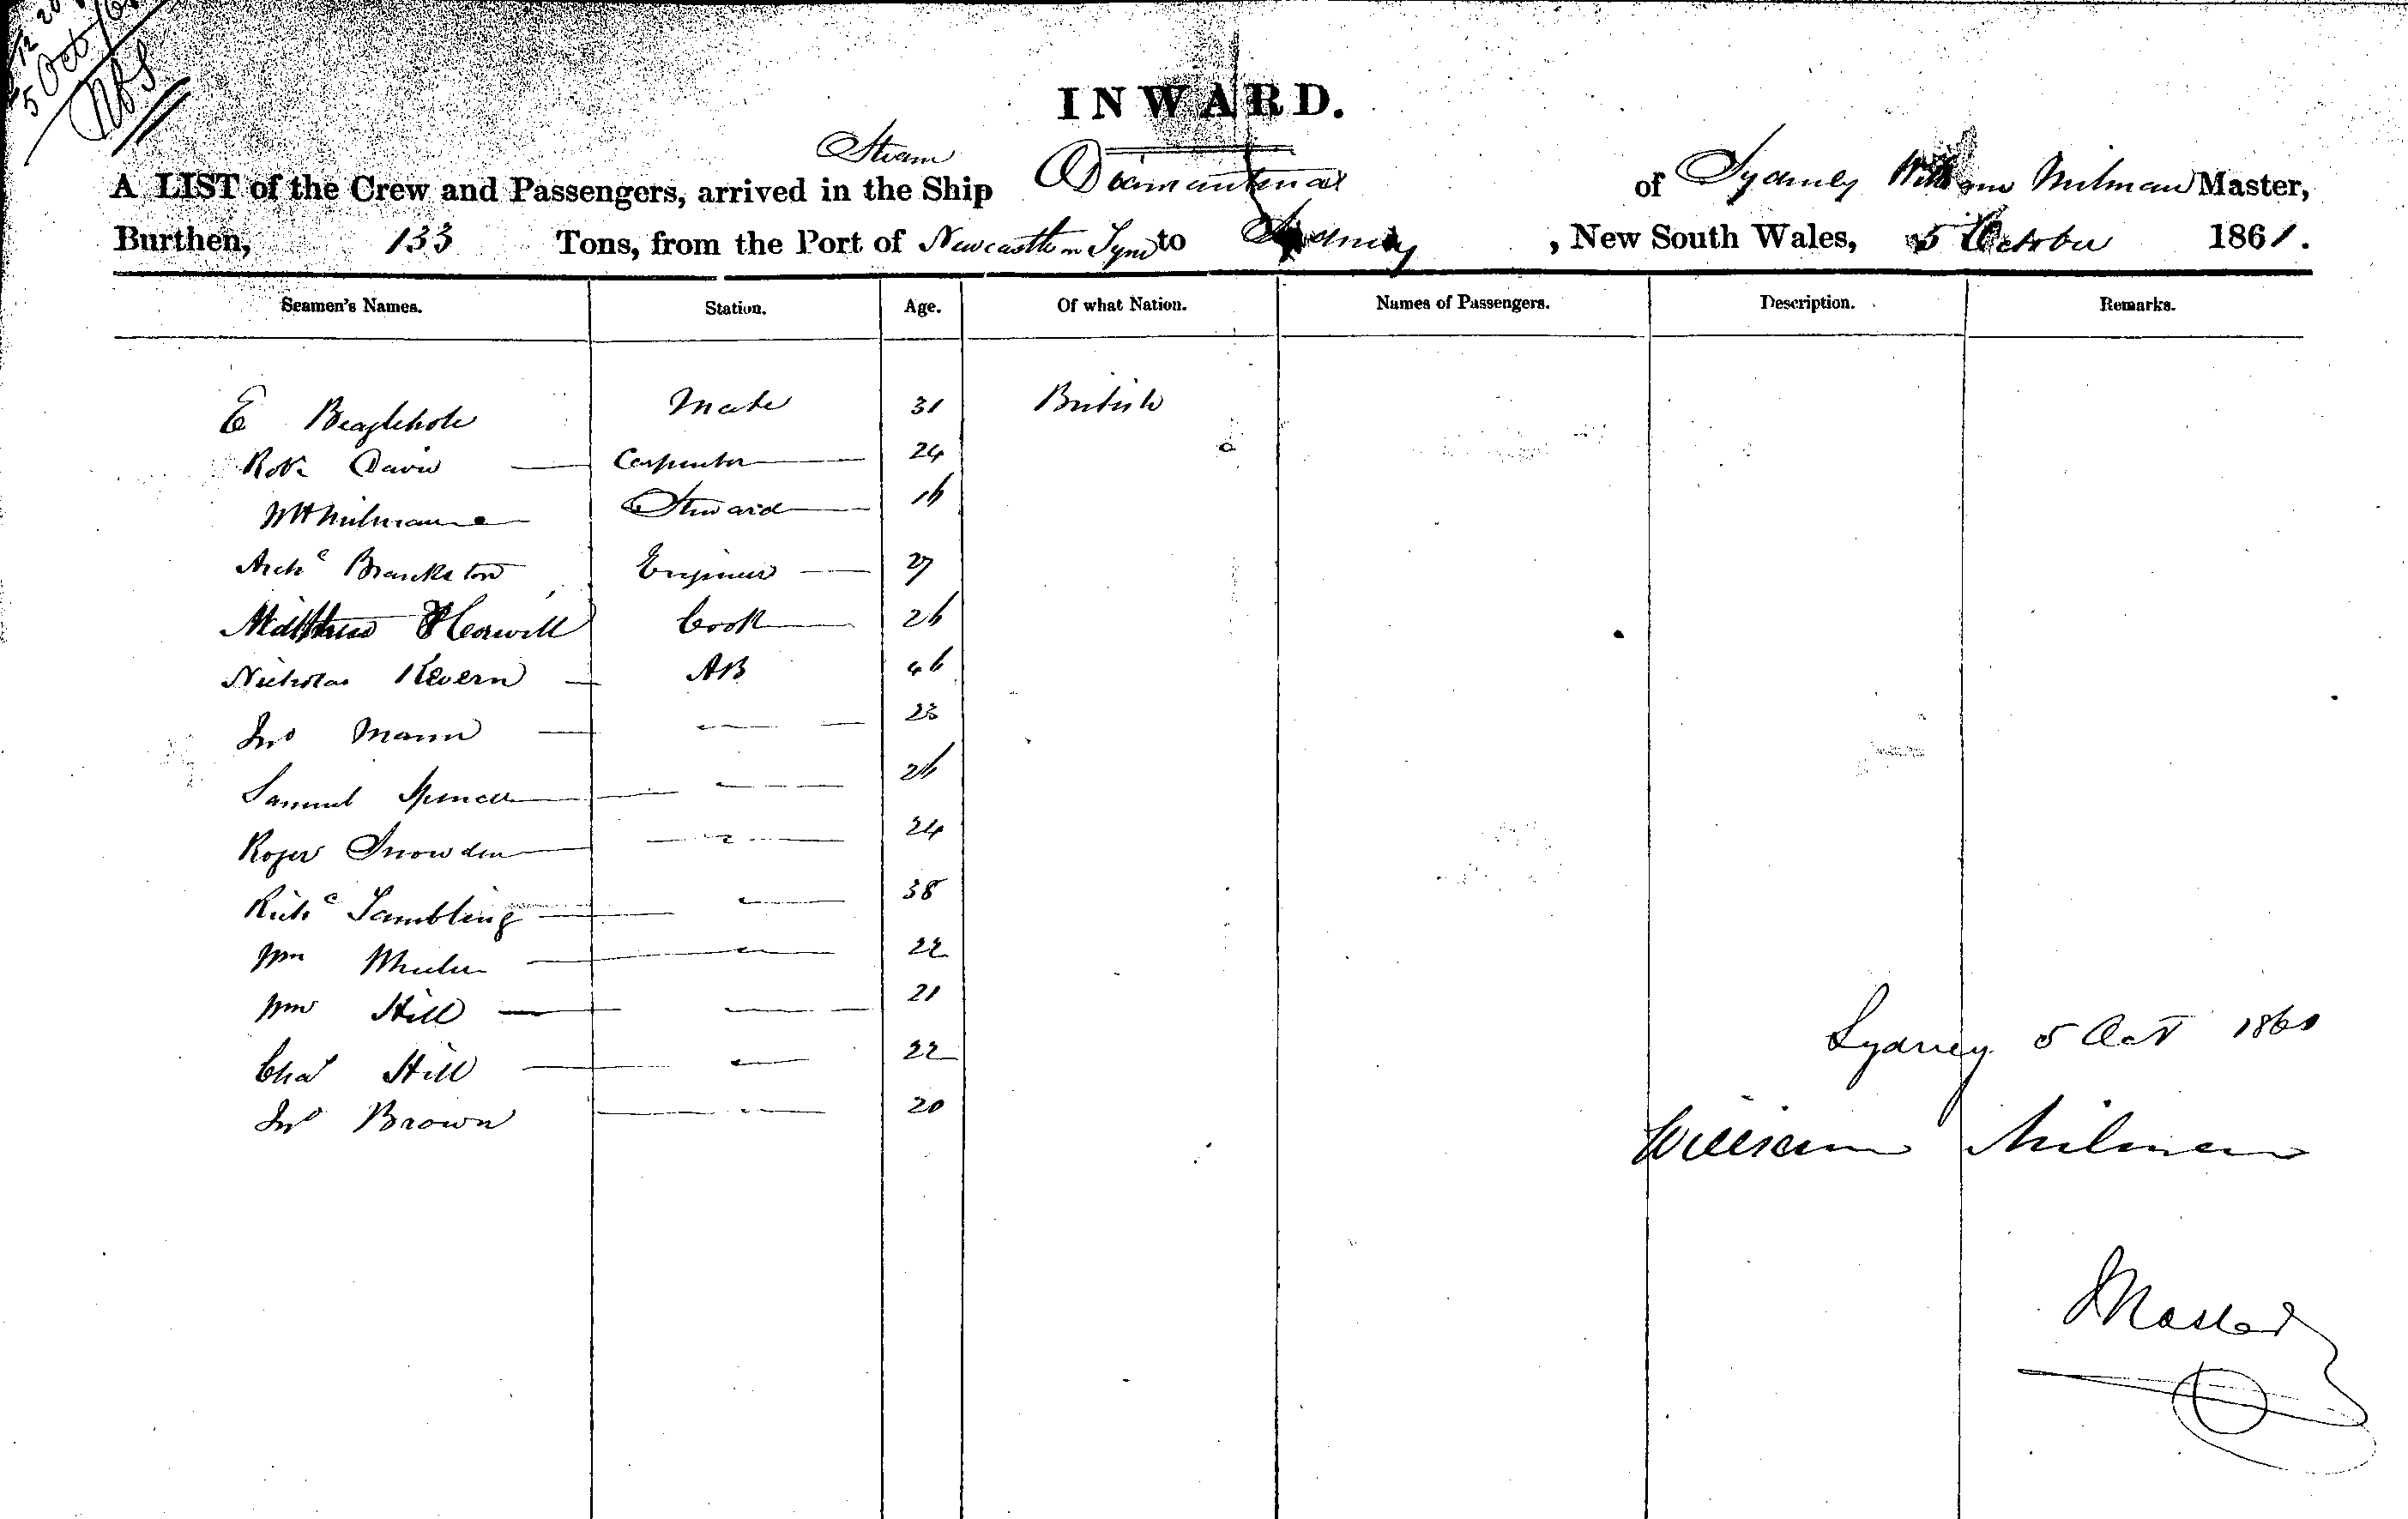 12 20
5 Oct /61
INWARD.
A LIST of the Crew and Passengers, arrived in the Steam Ship Diamantina of Sydney William Milman Master,
Burthen, 133 Tons, from the Port of Newcastle on Tyne to Sydney , New South Wales, 5 October 1861.
Seamen's Names. Station. Age. Of what Nation. Names of Passengers. Description. Remarks.
E Beaglehole Mate 31 British
Robt Davis Carpenter 24
W H Milman Steward 16
Archd Brankston Engineer 27
Matthew Horwill Cook 26
Nicholas Kevern AB 46
Jno Mann 23
Samuel Spencer 26
Roger Snowden 24
Richd Tambling 38
Wm Wheeler 22
Wm Hill 21
Chas Hill 22
Jno Brown 20
Sydney 5 Oct 1861
William Milman
Master